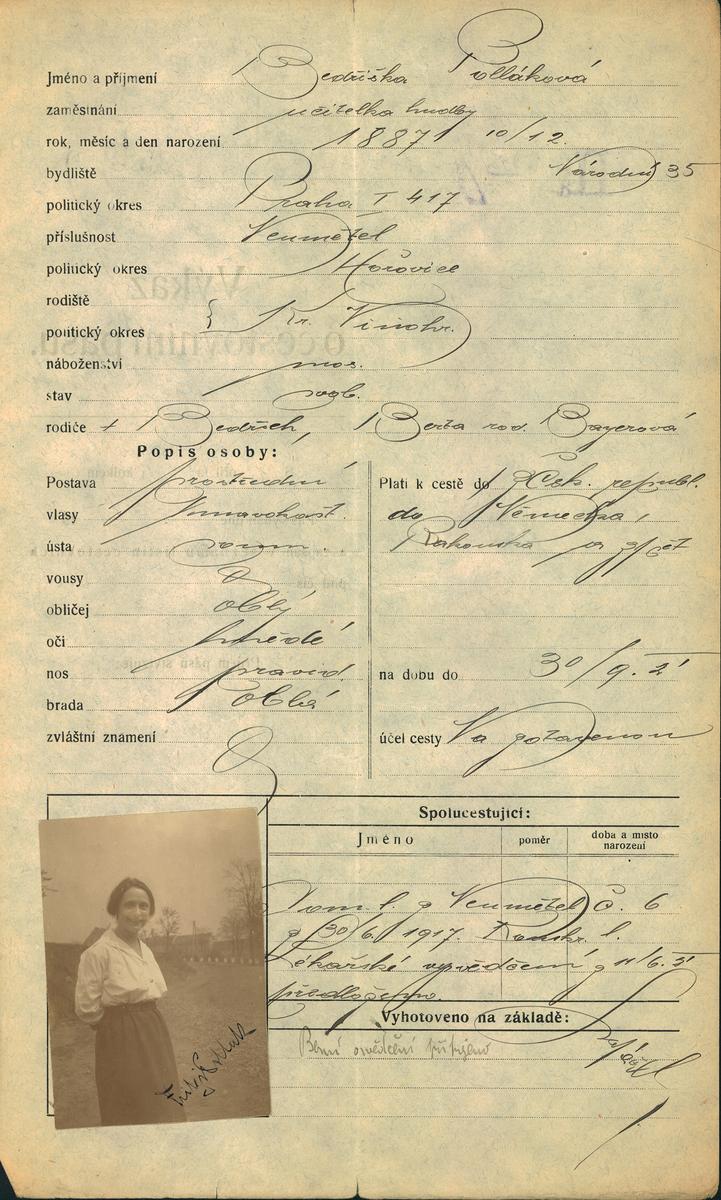 Jméno a příjmení Bedřiška Polláková
zaměstnání učitelka hudby
rok, měsíc a den narození 1887 10/12.
bydliště Národní 35
politický okres Praha I 417
příslušnost Neumětel
politický okres Hořovice
rodiště
politický okres { Kr. Vinohr.
náboženství mos.
stav svob.
rodiče + Bedřich, Berta roz. Bayerová
Popis osoby:
Postava prostřední
vlasy tmavokašt.
ústa
vousy
obličej oblý
oči hnědé
nos pravid.
brada oblá
zvláštní znamení
Platí k cestě do Čsk. republ.
do Německa,
Rakouska a zpět
na dobu do 30/9. 21
účel cesty Na zotavenou
Spolucestující:
Jméno poměr doba a místo narození
Dom. l. z Neumětel č. 6
z 30/6. 1917.
Lékařské vysvědčení z 11/6. 21
předloženo.
Vyhotoveno na základě:
Fritzi Pollak